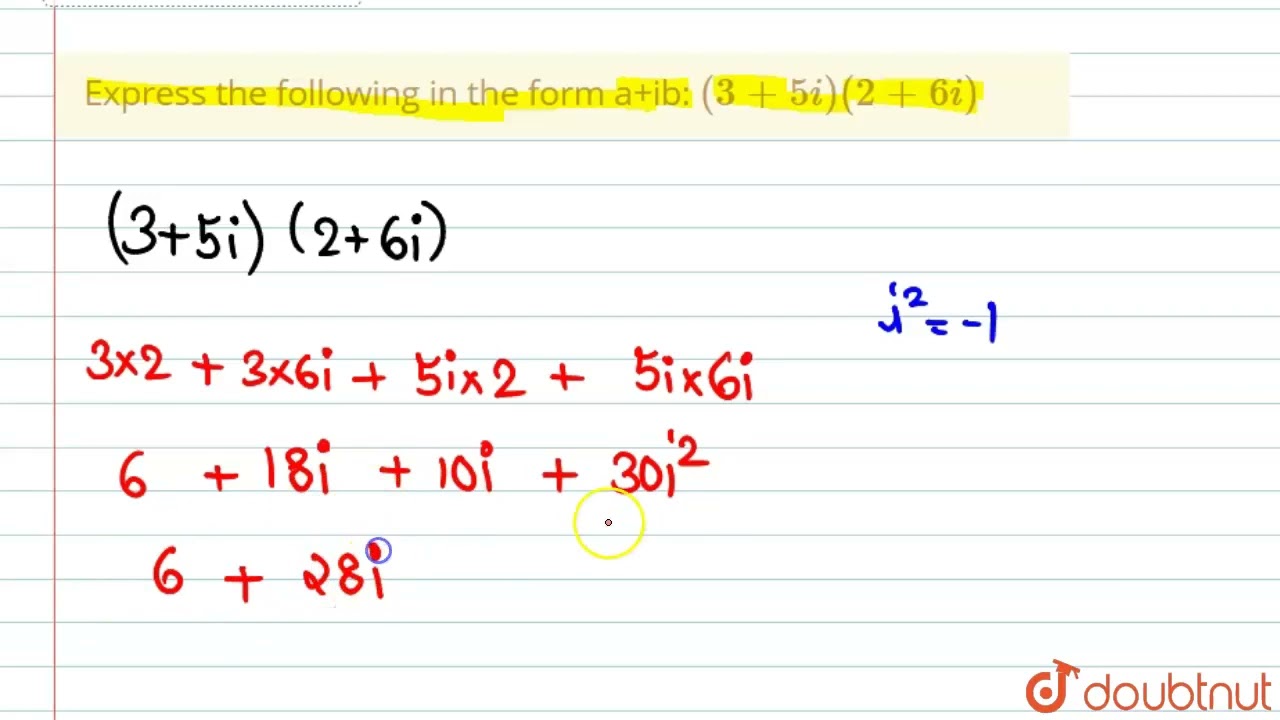 Express the following in the form a+ib: (3 + 5i)(2 + 6i)
(3+5i) (2+6i)
i² = -1
3×2 + 3×6i + 5i×2 + 5i×6i
6 + 18i + 10i + 30i²
6 + 28i
doubtnut